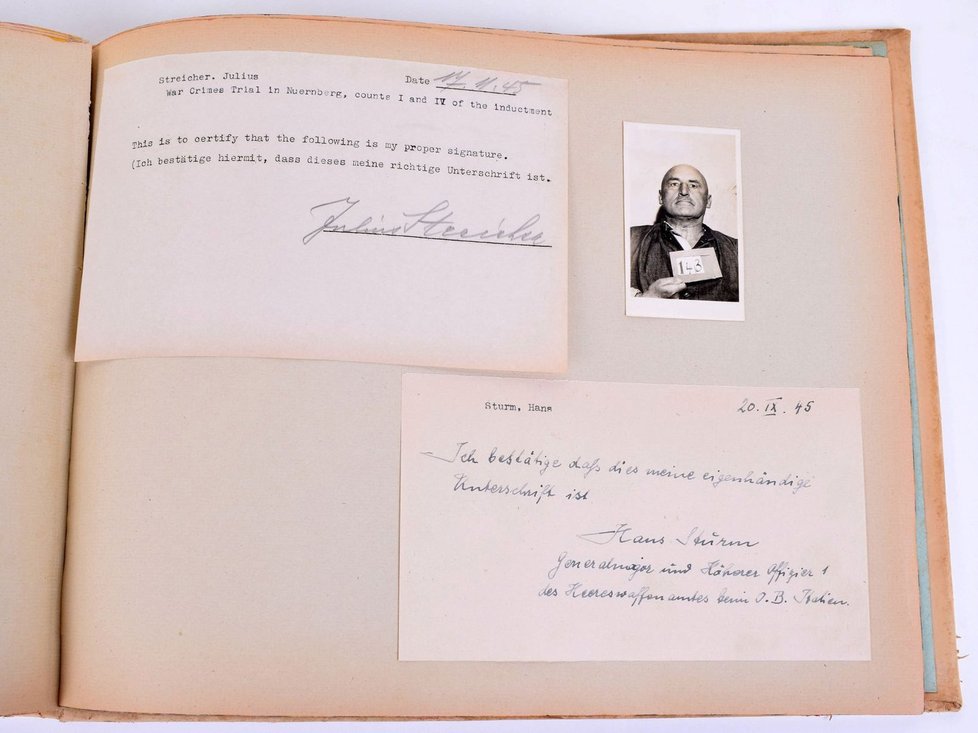 Streicher. Julius Date 17. 11. 45
War Crimes Trial in Nuernberg, counts I and IV of the inductment
This is to certify that the following is my proper signature.
(Ich bestätige hiermit, dass dieses meine richtige Unterschrift ist.
Julius Streicher
143
Sturm, Hans 20. IX. 45
Ich bestätige daß dies meine eigenhändige
Unterschrift ist
Hans Sturm
Generalmajor und Höherer Offizier 1
des Heereswaffenamtes beim O. B. Italien.